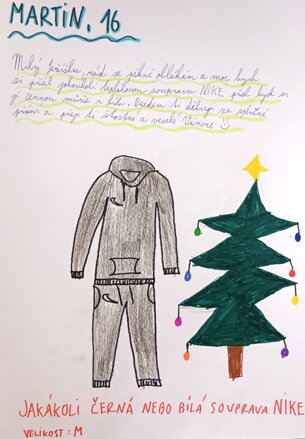 MARTIN, 16
Milý Ježíšku, rád se pěkně oblékám a moc bych
si přál jakoukoli teplákovou soupravu NIKE přál bych si
ji černou může i bílá. Předem ti děkuji za splnění
přání a přeji ti šťastné a veselé Vánoce
JAKÁKOLI ČERNÁ NEBO BÍLÁ SOUPRAVA NIKE
VELIKOST: M